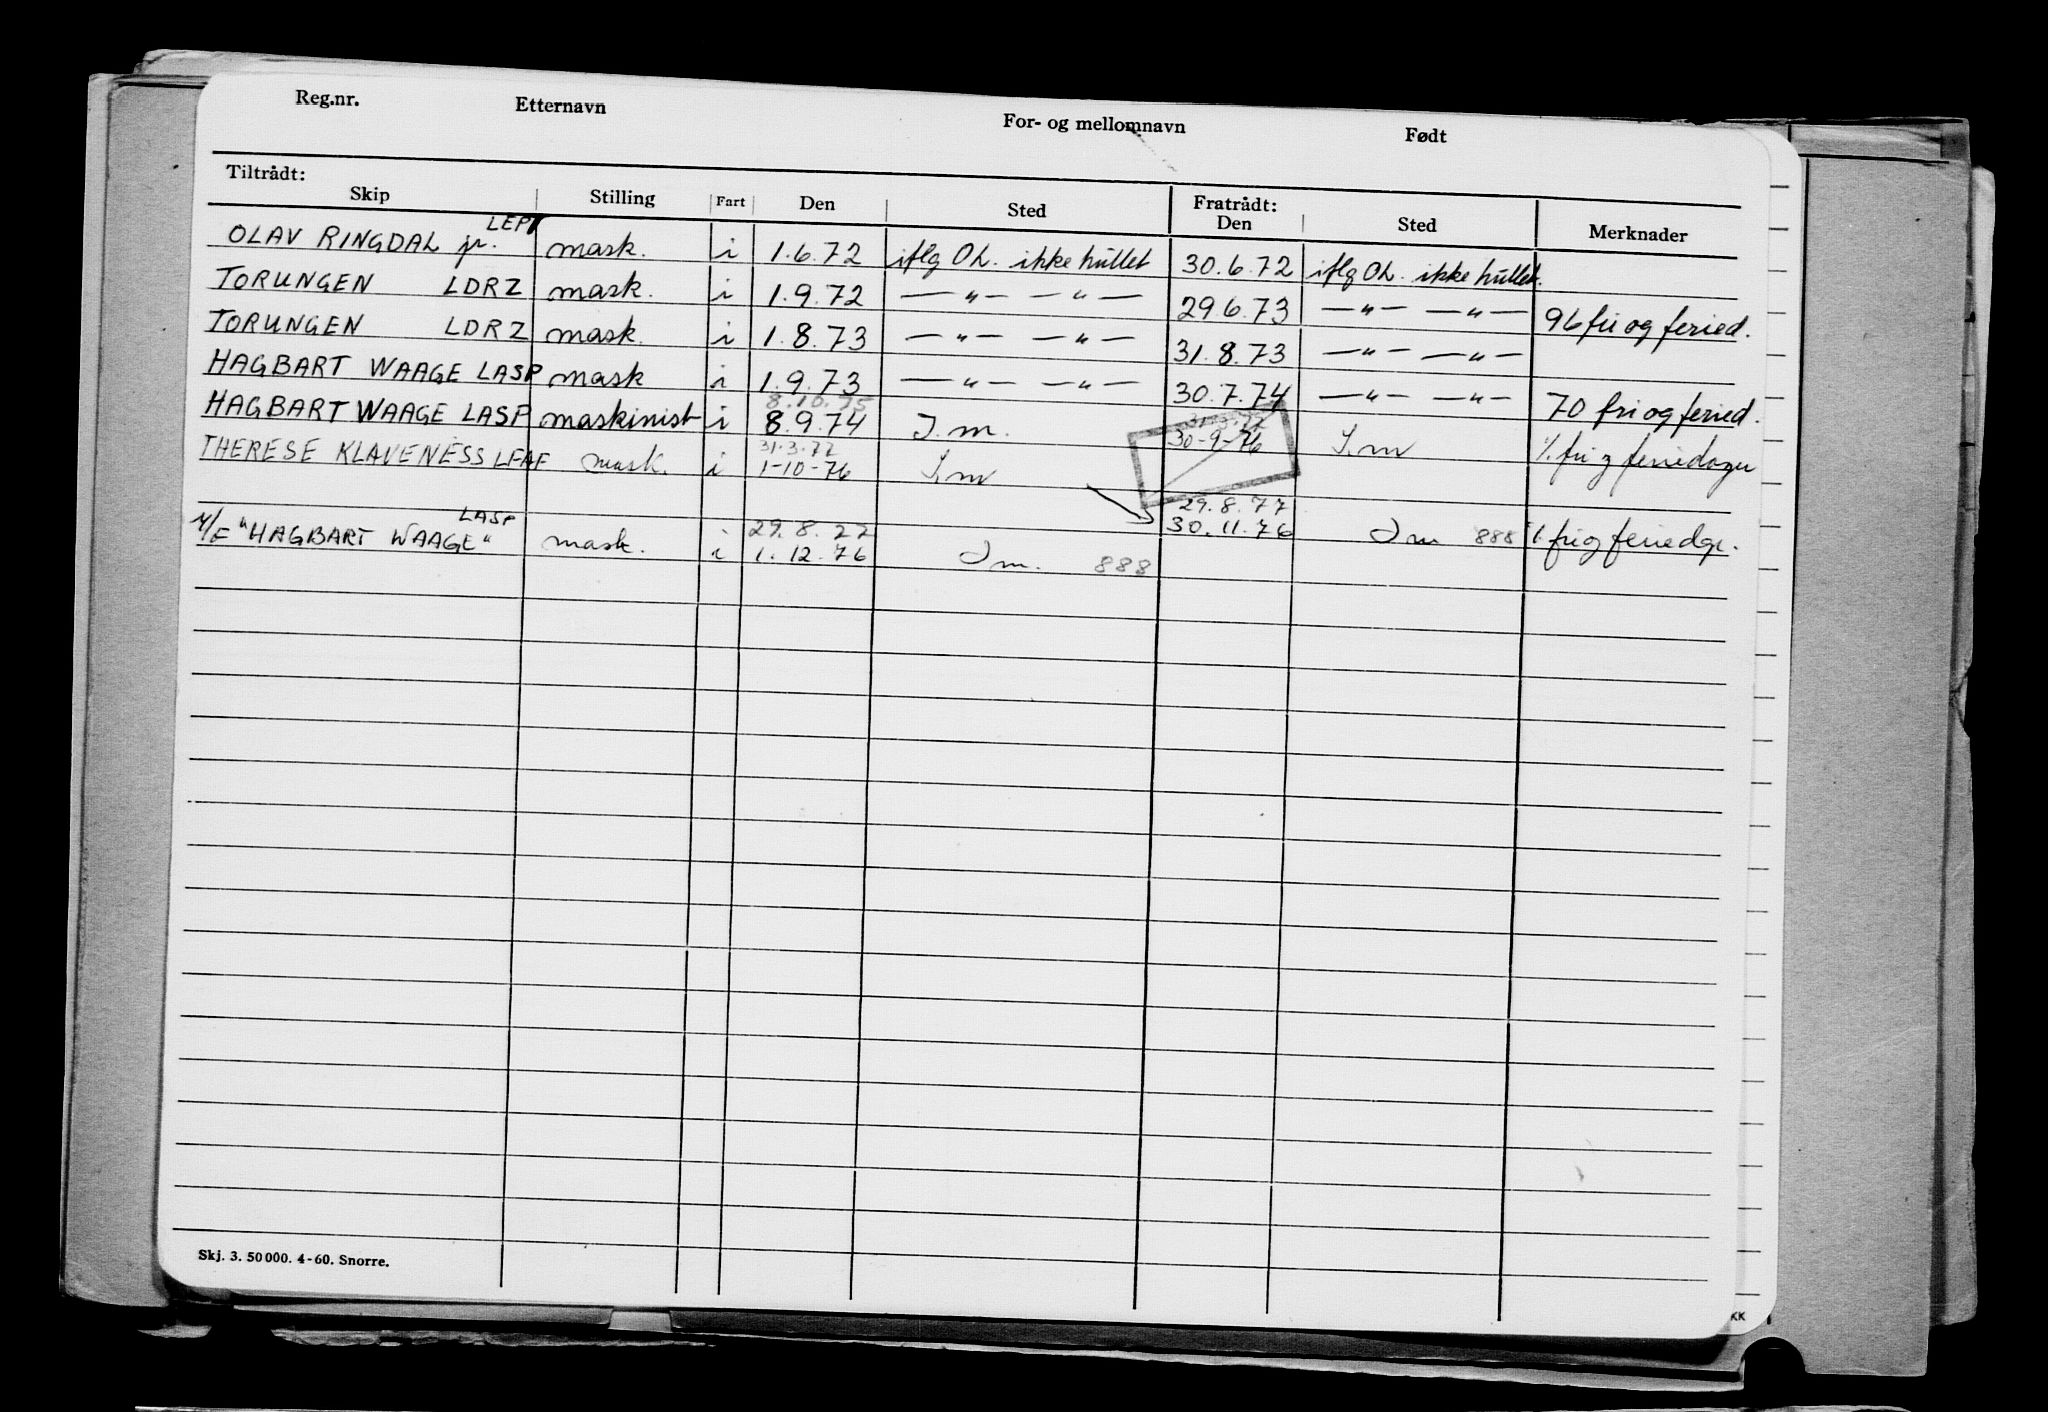 Reg.nr. Etternavn For- og mellomnavn Født
Tiltrådt: Fratrådt:
Skip Stilling Fart Den Sted Den Sted Merknader
LEPY
OLAV RINGDAL jr. mask. i 1.6.72 iflg OL. ikke hullet 30.6.72 iflg OL. ikke hullet.
TORUNGEN LDRZ mask. i 1.9.72 — " — — " — 29.6.73 — " — — " — 96 fri og feried.
TORUNGEN LDRZ mask. i 1.8.73 — " — — " — 31.8.73 — " — — " —
HAGBART WAAGE LASP mask i 1.9.73 — " — — " — 30.7.74 — " — — " — 70 fri og feried.
8.10.75 31.3.77
HAGBART WAAGE LASP maskinist i 8.9.74 I.m. 30-9-76 I.m % fri og feriedager
31.3.77
THERESE KLAVENESS LFAF mask. i 1-10-76 I.m
29.8.77
30.11.76 I m 888 % fri og feriedgr.
LASP 29.8.77
M/S "HAGBART WAAGE" mask. i 1.12.76 I m. 888
Skj. 3. 50 000. 4-60. Snorre.
KK